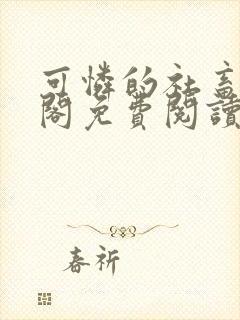 可憐的社畜
閣免費閱讀
春祈